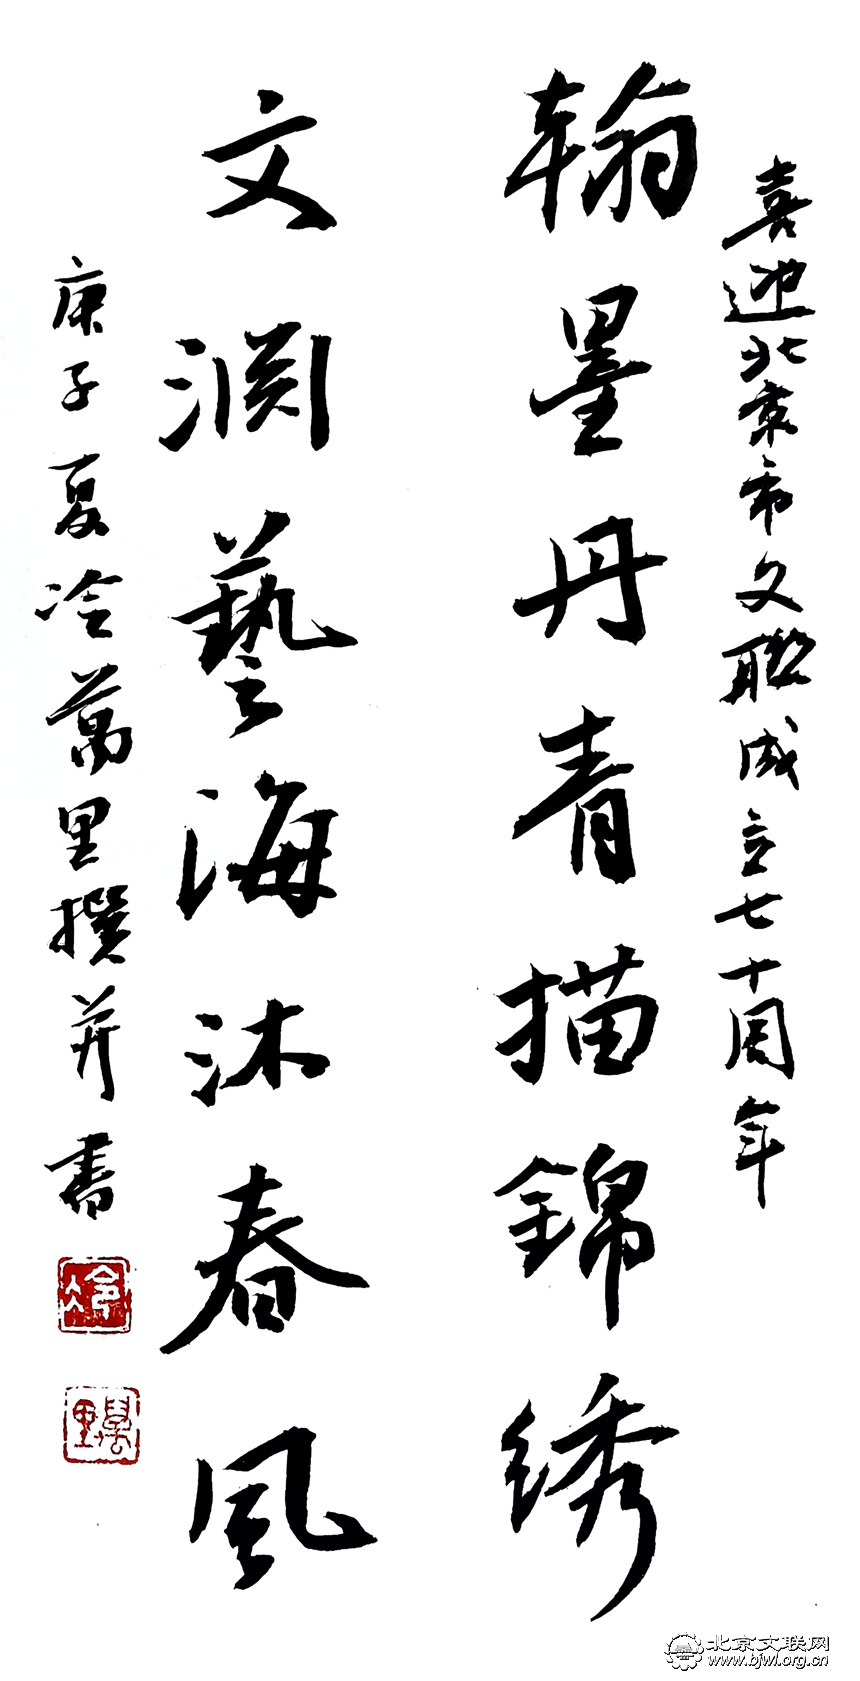 喜迎北京市文聯成立七十周年
翰墨丹青描錦绣
文渊藝海沐春風
庚子夏冷萬里撰并書
冷
萬里
北京文联网
www.bjwl.org.cn